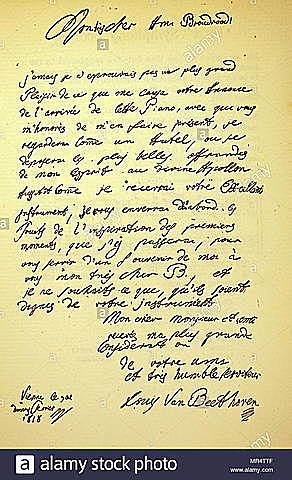 Mon très cher Ami Broadwood!
jamais je n'eprouvais pas un plus grand
Plaisir de ce que me causa votre Annonce
de l'arrivée de cette Piano, avec que vous
m'honorès de m'en faire présent, je
regarderai come un Autel, ou je
deposerai les plus belles offrandes
de mon Esprit au divine Apollon
Aussitôt come je recevrai votre Excellent
Instrument, je vous enverrai d'abord les
Fruits de l'inspiration des premiers
moments, que j'y passerai, pour
vous servir d'un Souvenir de moi à
vous mon très cher B., et
je ne souhaits ce que, qu'ils soient
dignes de votre instrument.
Mon cher monsieur et ami
recevés ma plus grande
consideration
de votre ami
et très humble serviteur
Louis Van Beethoven
Vienne le 3me
du mois Fevrier
1818
alamy
MR4TTF
alamy stock photo